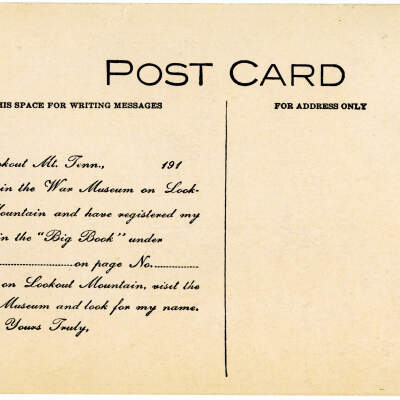 POST CARD
HIS SPACE FOR WRITING MESSAGES
FOR ADDRESS ONLY
okout Mt. Tenn., 191
in the War Museum on Look-
ountain and have registered my
in the "Big Book" under
on page No.
on Lookout Mountain, visit the
Museum and look for my name.
Yours Truly,